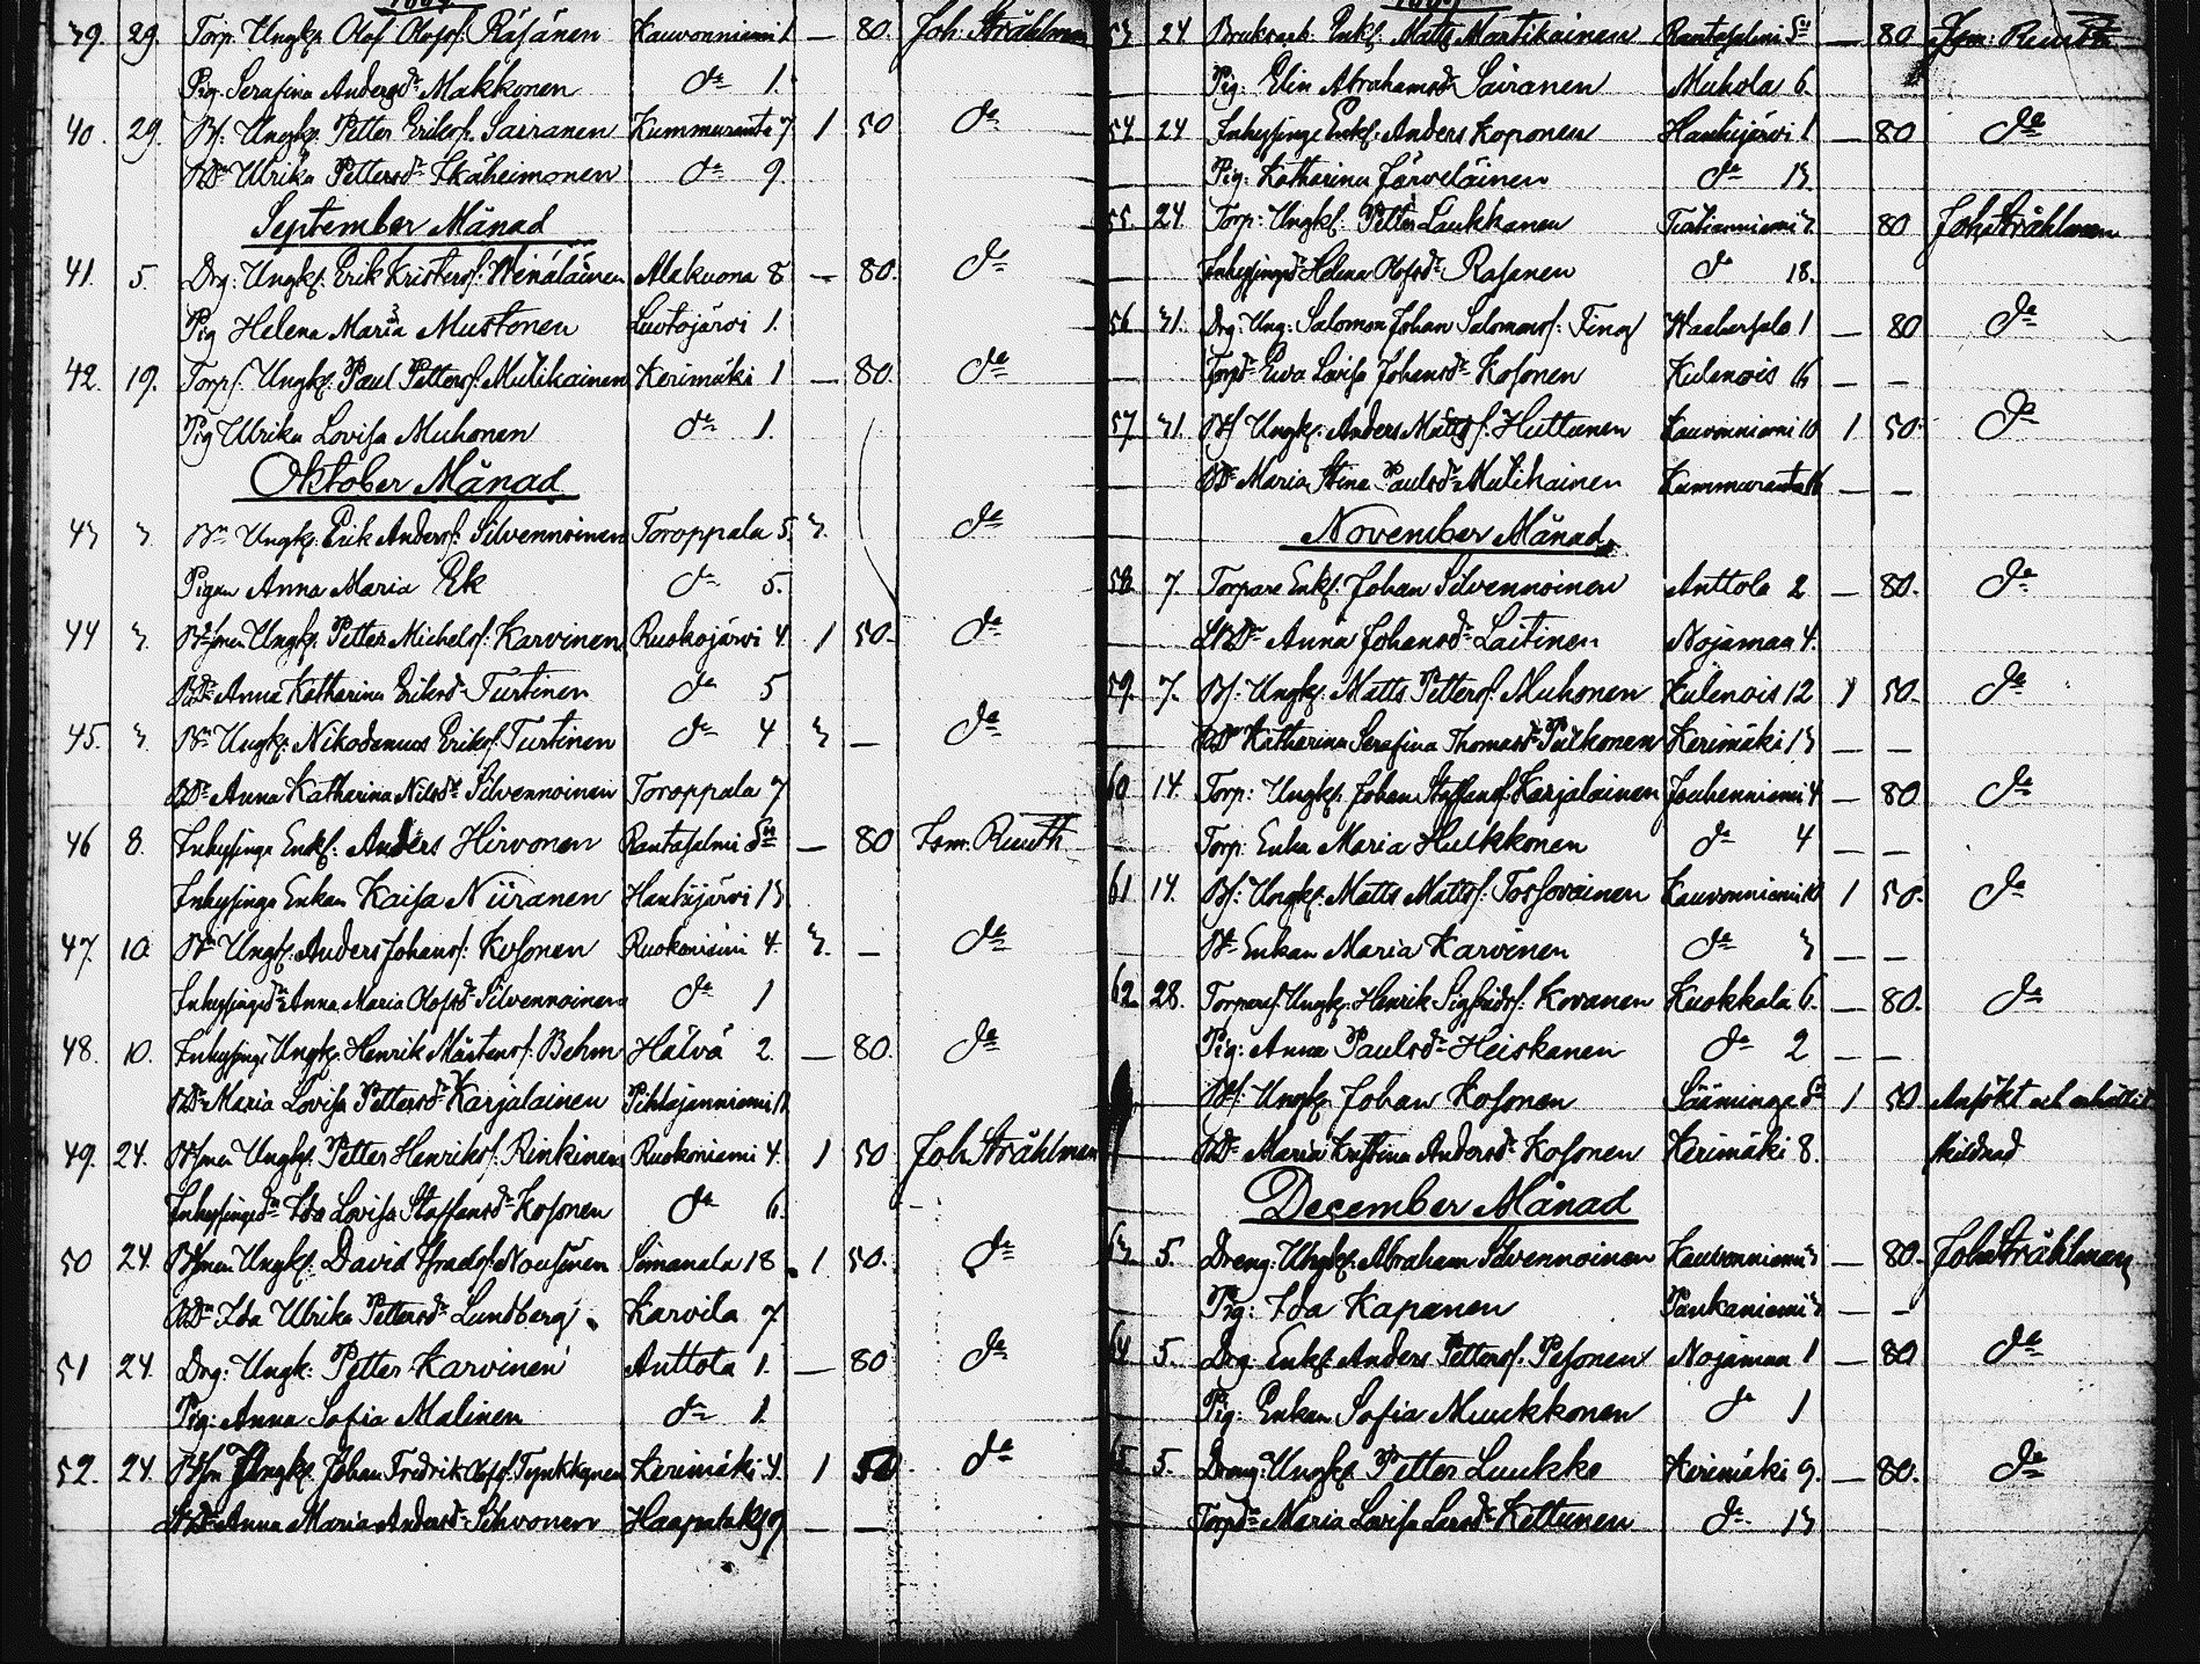 39. 29. Torp. Ungk. Olof Olofs: Räsänen Kauvonniemi 1 — 80. Joh. Stråhlman
Pig. Serafina Andersdr Makkonen do 1.
40. 29. Bs: Ungk. Petter Eriks. Sairanen Kummuranta 7 1 50 do
BDr Ulrika Pettersdr Ikäheimonen do 9.
September Månad
41. 5. Drg: Ungk: Erik Kristers: Wenäläinen Alakuona 8 — 80. do
Pig Helena Maria Mustonen Luotojärvi 1.
42. 19. Torps. Ungk. Paul Petters: Mulikainen Kerimäki 1 — 80. do
Pig Ulrika Lovisa Muhonen do 1.
Oktober Månad
43 3. Bn Ungk: Erik Anders: Silvennoinen Toroppala 5. 3. do
Pigan Anna Maria Ek do 5.
44 3. Ungk: Petter Michels: Karvinen Ruokojärvi 4. 1 50. do
BDr Anna Katharina Eriksdr Turtinen do 5
45. 3. Bn Ungk: Nikodemus Eriks: Turtinen do 4 3 — do
BDr Anna Katharina Nilsdr Silvennoinen Toroppala 7
46 8. Inhysinge Enkl: Anders Hirvonen Rantasalmi Sn — 80 Ism. Ruuth
Inhysinge Enkan Kaisa Niiranen Hanhijärvi 13
47. 10. Bn Ungk: Anders Johans: Kosonen Ruokoniemi 4. 3. — do
Inhysingedr Anna Maria Olofsdr Silvennoinen do 1
48. 10. Inhysinge Ungk. Henrik Mårtens: Behm Hälvä 2. — 80. do
BDr Maria Lovisa Pettersdr Karjalainen Pihlajanniemi 11.
49. 24. Ungk. Petter Henriks: Rinkinen Ruokoniemi 4. 1 50 Joh Stråhlman
Inhysingedr Ida Lovisa Staffansdr Kosonen do 6.
50 24. Ungk. David Nousiinen Simanala 18 1 50. do
BDr Ida Ulrika Pettersdr Lundberg. Karvila 7
51 24. Drg: Ungk: Petter Karvinen Anttola 1. — 80 do
Pig: Anna Sofia Malinen do 1.
52. 24. Ungk. Johan Fredrik Olofs: Tynkkynen Kerimäki 4. 1 50. do
Anna Maria Andersdr Sihvonen Haapataks 7 — —
53 24 Bruksarb. Enkl: Matts Martikainen Rantasalmi Sn — 80 Ism: Ruuth
Pig: Elin Abrahamsdr Sairanen Muhola 6.
54 24 Inhysinge Enkl: Anders Koponen Hanhijärvi 1 — 80 do
Pig: Katharina Järveläinen do 13.
55. 24. Torp: Ungk: Petter Laukkanen Tuohianniemi 3. 80 Joh. Stråhlman
Inhysingedr Helena Olofsdr Räsänen do 18.
56 31. Drg: Ung: Salomon Johan Salomons: Finn Waahersalo 1 — 80 do
Torpdr Ewa Lovisa Johansdr Kosonen Kulennois 16 — —
57. 31. Bs Ungk: Anders Matts: Huttunen Kauvonniemi 10 1 50. do
BDr Maria Stina Paulsdr Mulikainen Kummuranta 16 — —
November Månad
58. 7. Torpare Enkl: Johan Silvennoinen Anttola 2 — 80. do
Anna Johansdr Laitinen Nojamaa 4.
59. 7. Bs: Ungk: Matts Petters: Muhonen Kulennois 12 1 50. do
BDr Katharina Serafina Thomasdr Pulkonen Kerimäki 13 — —
60 14. Torp: Ungk: Johan Staffans: Karjalainen Jouhenniemi 4 — 80 do
Torp: Enka Maria Hukkonen do 4 — —
61. 14. Bs: Ungk: Matts Matts: Tossavainen Kauvonniemi 10 1 50. do
Enkan Maria Karvinen do 3 — —
62. 28. Torpares Ungk: Henrik Sigfrids: Kovanen Kuokkala 6. — 80. do
Pig: Anna Paulsdr Heiskanen do 2 — —
Bs: Ungk. Johan Kosonen Sääminge Sn 1 50 Ansökt och erhållit
BDr Maria Kristina Andersdr Kosonen Kerimäki 8. skildnad
December Månad
63. 5. Dreng: Ungk: Abraham Silvennoinen Kauvonniemi 3 — 80. Joh. Stråhlman
Pig: Ida Kapanen Paukaniemi 3 — —
64. 5. Drg: Enkl: Anders Petters: Pesonen Nojamaa 1 — 80 do
Pig: Enkan Sofia Muukkonen do 1
65 5. Dreng: Ungk: Petter Luukko Kerimäki 9. — 80. do
Torpdr Maria Lovisa Larsdr Kettunen do 13